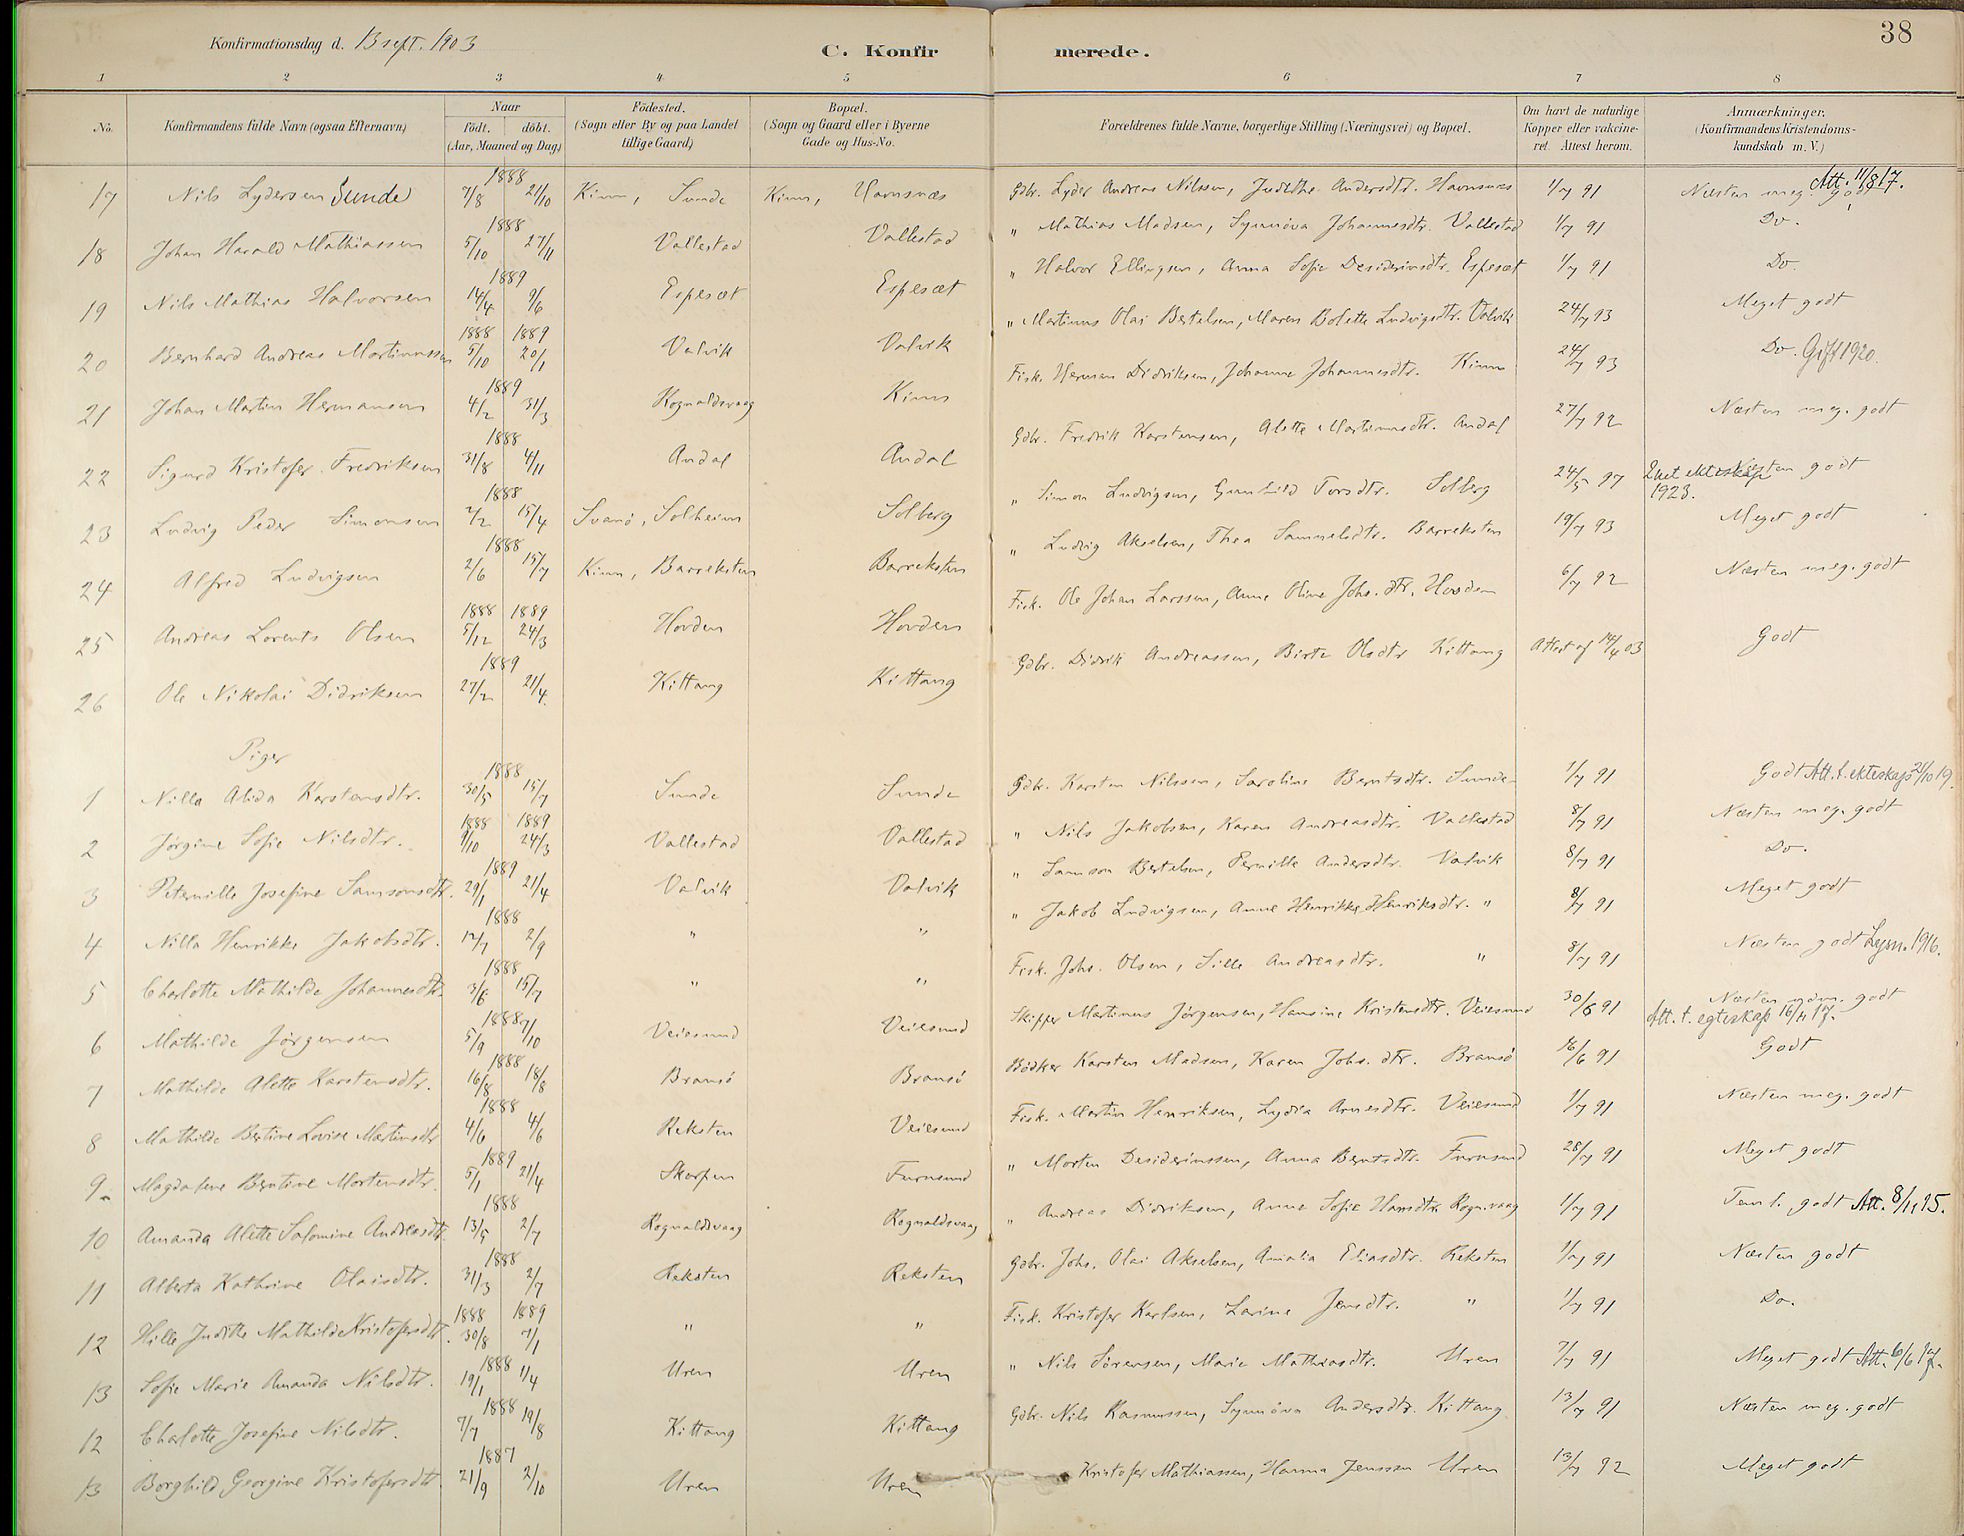 38
Konfirmationsdag d. 13 sept. 1903
C. Konfirmerede.
1 2 3 4 5 6 7 8
No. Konfirmandens fulde Navn (ogsaa Efternavn) Naar födt. döbt. (Aar, Maaned og Dag) Födested. (Sogn eller By og paa Landet tillige Gaard) Bopæl. (Sogn og Gaard eller i Byerne Gade og Hus-No. Forældrenes fulde Navne, borgerlige Stilling (Næringsvei) og Bopæl. Om havt de naturlige Kopper eller vakcineret. Attest herom. Anmærkninger. (Konfirmandens Kristendomskundskab m. V.)
17 Nils Lydersen Sunde 1888 7/8 21/10 Kinn, Sunde Kinn, Havnsnæs Gdbr. Lyder Andreas Nilssen, Judithe Andersdtr. Havnsnæs 1/7 91 Næsten meg. godt Att. 11/8 17.
18 Johan Harald Mathiassen 1888 5/10 27/11 Vallestad Vallestad " Mathias Madsen, Synnöva Johannesdtr. Vallestad 1/7 91 Do.
19 Nils Mathias Halvorsen 1889 14/4 9/6 Espesæt Espesæt " Halvor Ellingsen, Anna Sofie Desideriusdtr. Espesæt 1/7 91 Do.
20 Bernhard Andreas Martinussen 1888 5/10 1889 20/1 Valvik Valvik " Martinus Olai Bertelsen, Maren Bolette Ludvigsdtr. Valvik 24/7 93 Meget godt
21 Johan Martin Hermansen 1889 4/2 31/3 Rognaldsvaag Kinn Fisk. Herman Didriksen, Johanne Johannesdtr. Kinn 24/7 93 Do. Gift 1920.
22 Sigurd Kristofer Fredriksen 1888 31/8 4/11 Andal Andal Gdbr. Fredrik Karstensen, Alette Martinusdtr. Andal 27/7 92 Næsten meg. godt
23 Ludvig Peder Simonsen 1888 2/2 15/4 Svanö, Solheim Solberg " Simon Ludvigsen, Gunhild Torsdtr. Solberg 24/5 97 Næsten godt 2net ekteskap 1923.
24 Alfred Ludvigsen 1888 2/6 15/7 Kinn, Barreksten Barreksten " Ludvig Akselsen, Thea Samuelsdtr. Barreksten 19/7 93 Meget godt
25 Andreas Lorents Olsen 1888 5/12 1889 24/3 Hovden Hovden Fisk. Ole Johan Larssen, Anne Oline Johs.dtr. Hovden 6/7 92 Næsten meg. godt
26 Ole Nikolai Didriksen 1889 27/2 21/4. Kittang Kittang Gdbr. Didrik Andreassen, Birte Olsdtr Kittang Attest af 14/4 03 Godt
Piger
1 Nilla Alida Karstensdtr. 1888 30/5 15/7 Sunde Sunde Gdbr. Karsten Nilssen, Saroline Berntsdtr. Sunde 1/7 91 Godt Att. t. ekteskap 21/10 19.
2 Jörgine Sofie Nilsdtr. 1888 9/10 1889 24/3 Vallestad Vallestad " Nils Jakobsen, Karen Andreasdtr. Vallestad 8/7 91 Næsten meg. godt
3 Peternille Josefine Samsonsdtr. 1889 29/1 21/4 Valvik Valvik " Samson Bertelsen, Pernille Andersdtr. Valvik 8/7 91 Do.
4 Nilla Henrikke Jakobsdtr. 1888 12/7 2/9 " " " Jakob Ludvigsen, Anne Henrikke Henriksdtr. " 8/7 91 Meget godt
5 Charlotte Mathilde Johannesdtr. 1888 3/6 15/7 " " Fisk. Johs. Olsen, Sille Andreasdtr. " 8/7 91 Næsten godt Lysn. 1916.
6 Mathilde Jörgensen 1888 5/9 7/10 Veiesund Veiesund Skipper Martinus Jörgensen, Hansine Kristensdtr. Veiesund 30/6 91 Næsten godt Att. t. egteskap 16/11 17.
7 Mathilde Alette Karstensdtr. 1888 16/8 18/8 Bransö Bransö Bödker Karsten Madsen, Karen Johs.dtr. Bransö 16/6 91 Godt
8 Mathilde Bertine Lovise Martinsdtr 1888 4/6 4/6 Reksten Veiesund Fisk. Martin Henriksen, Lydia Arnesdtr. Veiesund 1/7 91 Næsten meg. godt
9. Magdalene Bentine Mortensdtr. 1889 5/1 21/4 Skorpen Furusund " Morten Desideriussen, Anna Berntsdtr. Furusund 28/7 91 Meget godt
10 Amanda Alette Salomine Andreasdtr. 1888 13/5 2/7 Rognaldsvaag Rognaldsvaag " Andreas Didriksen, Anne Sofie Hansdtr. Rogn.vaag 1/7 91 Teml. godt Att. 8/11 15.
11 Alberta Kathrine Olaisdtr. 1888 31/3 2/7 Reksten Reksten Gdbr. Johs. Olai Akselsen, Amalia Eliasdtr. Reksten 1/7 91 Næsten godt
12 Hille Judithe Mathilde Kristofersdtr. 1888 30/8 1889 7/1 " " Fisk. Kristofer Karlsen, Larine Jensdtr. " 1/7 91 Do.
13 Sofie Marie Amanda Nilsdtr. 1888 19/1 1/4 Uren Uren " Nils Sörensen, Marie Mathiasdtr. Uren 7/7 91 Meget godt Att. 6/6 17.
12 Charlotte Josefine Nilsdtr. 1888 7/7 19/8 Kittang Kittang Gdbr. Nils Rasmussen, Synnöva Andersdtr. Kittang 13/7 91 Næsten meg. godt
13 Borghild Georgine Kristofersdtr. 1887 21/9 2/10 Uren Uren Kristofer Mathiassen, Hanna Jenssen Uren 13/7 92 Meget godt